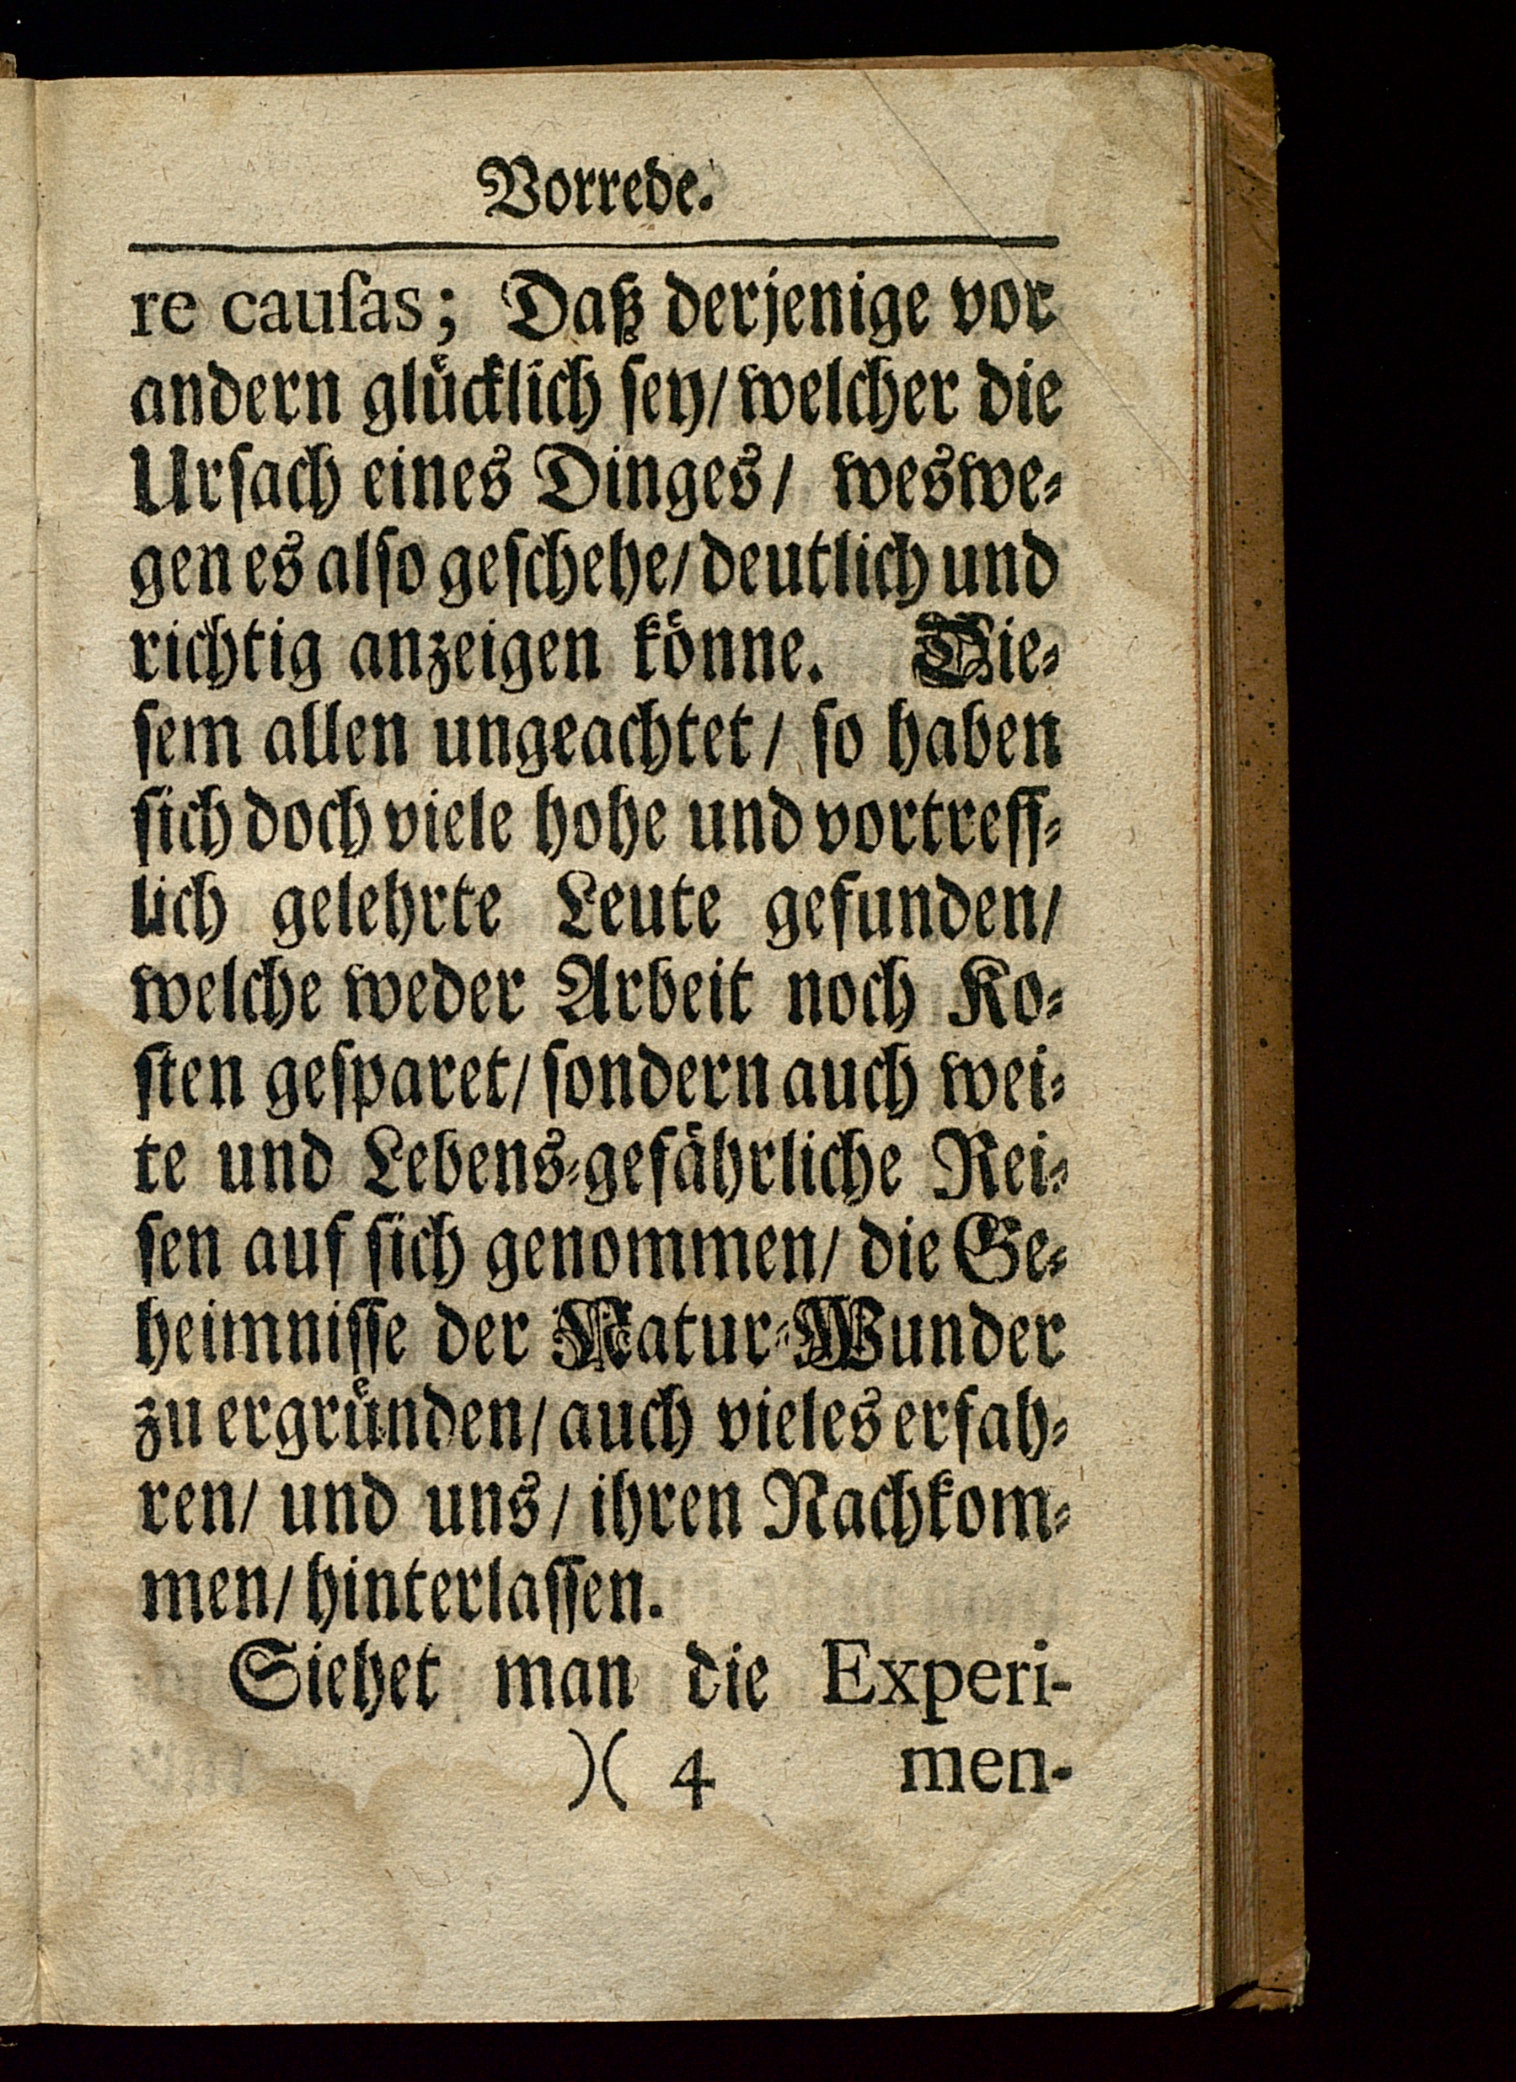 Vorrede.
re cauſas; Daß derjenige vor
andern gluͤcklich ſey/ welcher die
Urſach eines Dinges/ weswe⸗
gen es alſo geſchehe/ deutlich und
richtig anzeigen koͤnne. Die⸗
ſem allen ungeachtet/ ſo haben
ſich doch viele hohe und vortreff⸗
lich gelehrte Leute gefunden/
welche weder Arbeit noch Ko⸗
ſten geſparet/ ſondern auch wei⸗
te und Lebens⸗gefaͤhrliche Rei⸗
ſen auf ſich genommen/ die Ge⸗
heimniſſe der Natur⸗Wunder
zu ergruͤnden/ auch vieles erfah⸗
ren/ und uns/ ihren Nachkom⸗
men/ hinterlaſſen.
Siehet man die Experi-
)( 4 men-